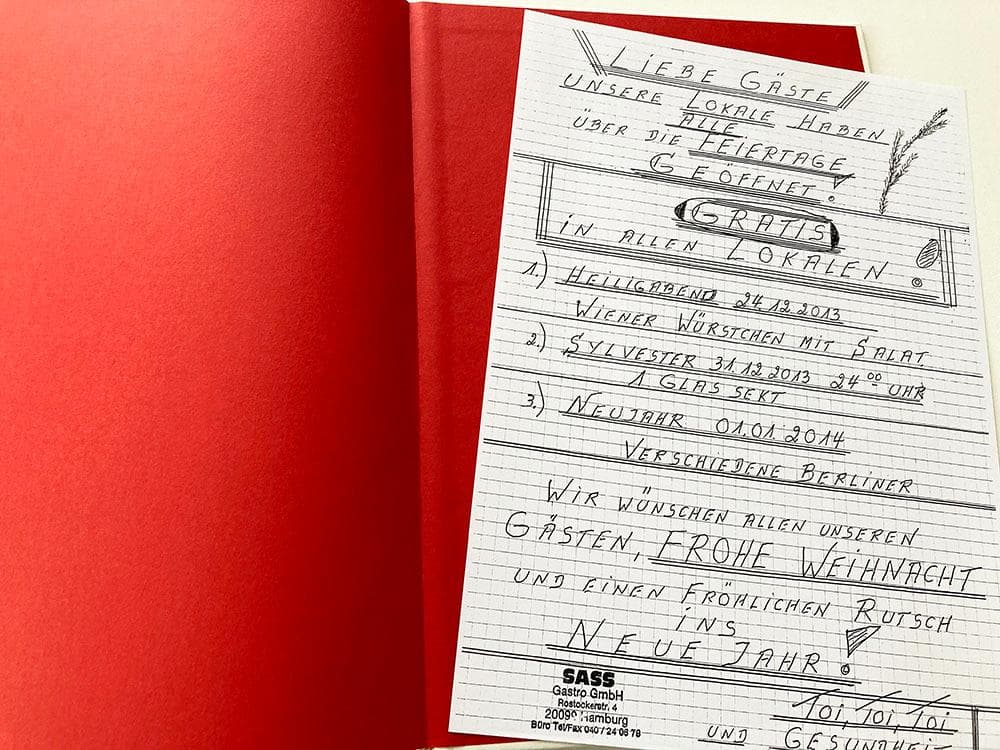 LiEBE GÄSTE
UNSERE LOKALE HABEN
ALLE
ÜBER DIE FEIERTAGE
GEÖFFNET!
GRATIS
iN ALLEN LOKALEN!
1.) HEiLiGABEND 24.12.2013
WiENER WÜRSTCHEN MiT SALAT.
2.) SYLVESTER 31.12.2013 24⁰⁰ UHR
1 GLAS SEKT
3.) NEUJAHR 01.01.2014
VERSCHiEDENE BERLiNER
WiR WÜNSCHEN ALLEN UNSEREN
GÄSTEN, FROHE WEiHNACHT
UND EiNEN FRÖHLiCHEN RUTSCH
iNS
NEUE JAHR!
SASS
Gastro GmbH
Rostockerstr. 4
Hamburg
Büro Tel/Fax 040/7 24 06 78
TOi, TOi, TOi
UND GESUNDHEi